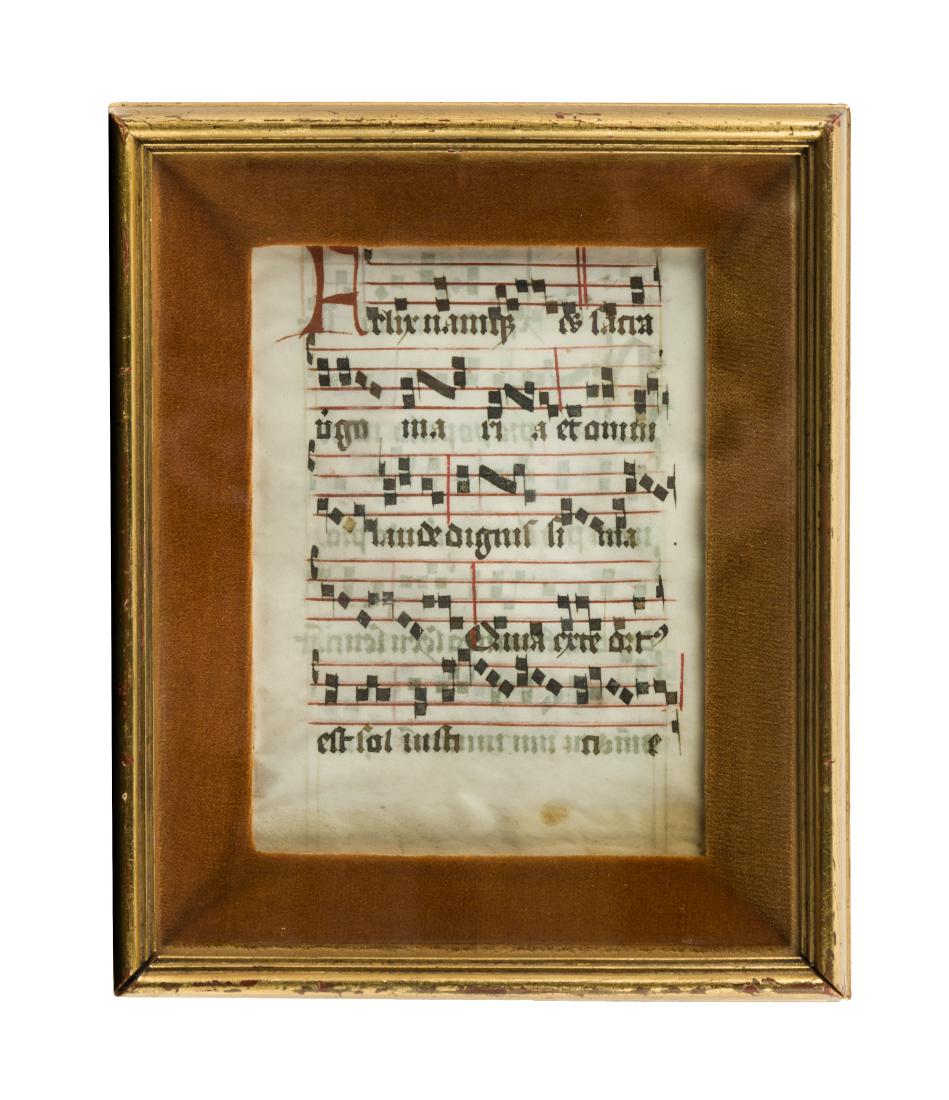 Felix namqꝫ es sacra
v̄go ma ri a et omni
laude dignis si ma
Quia ex te ort⁹
est sol iusti ti e